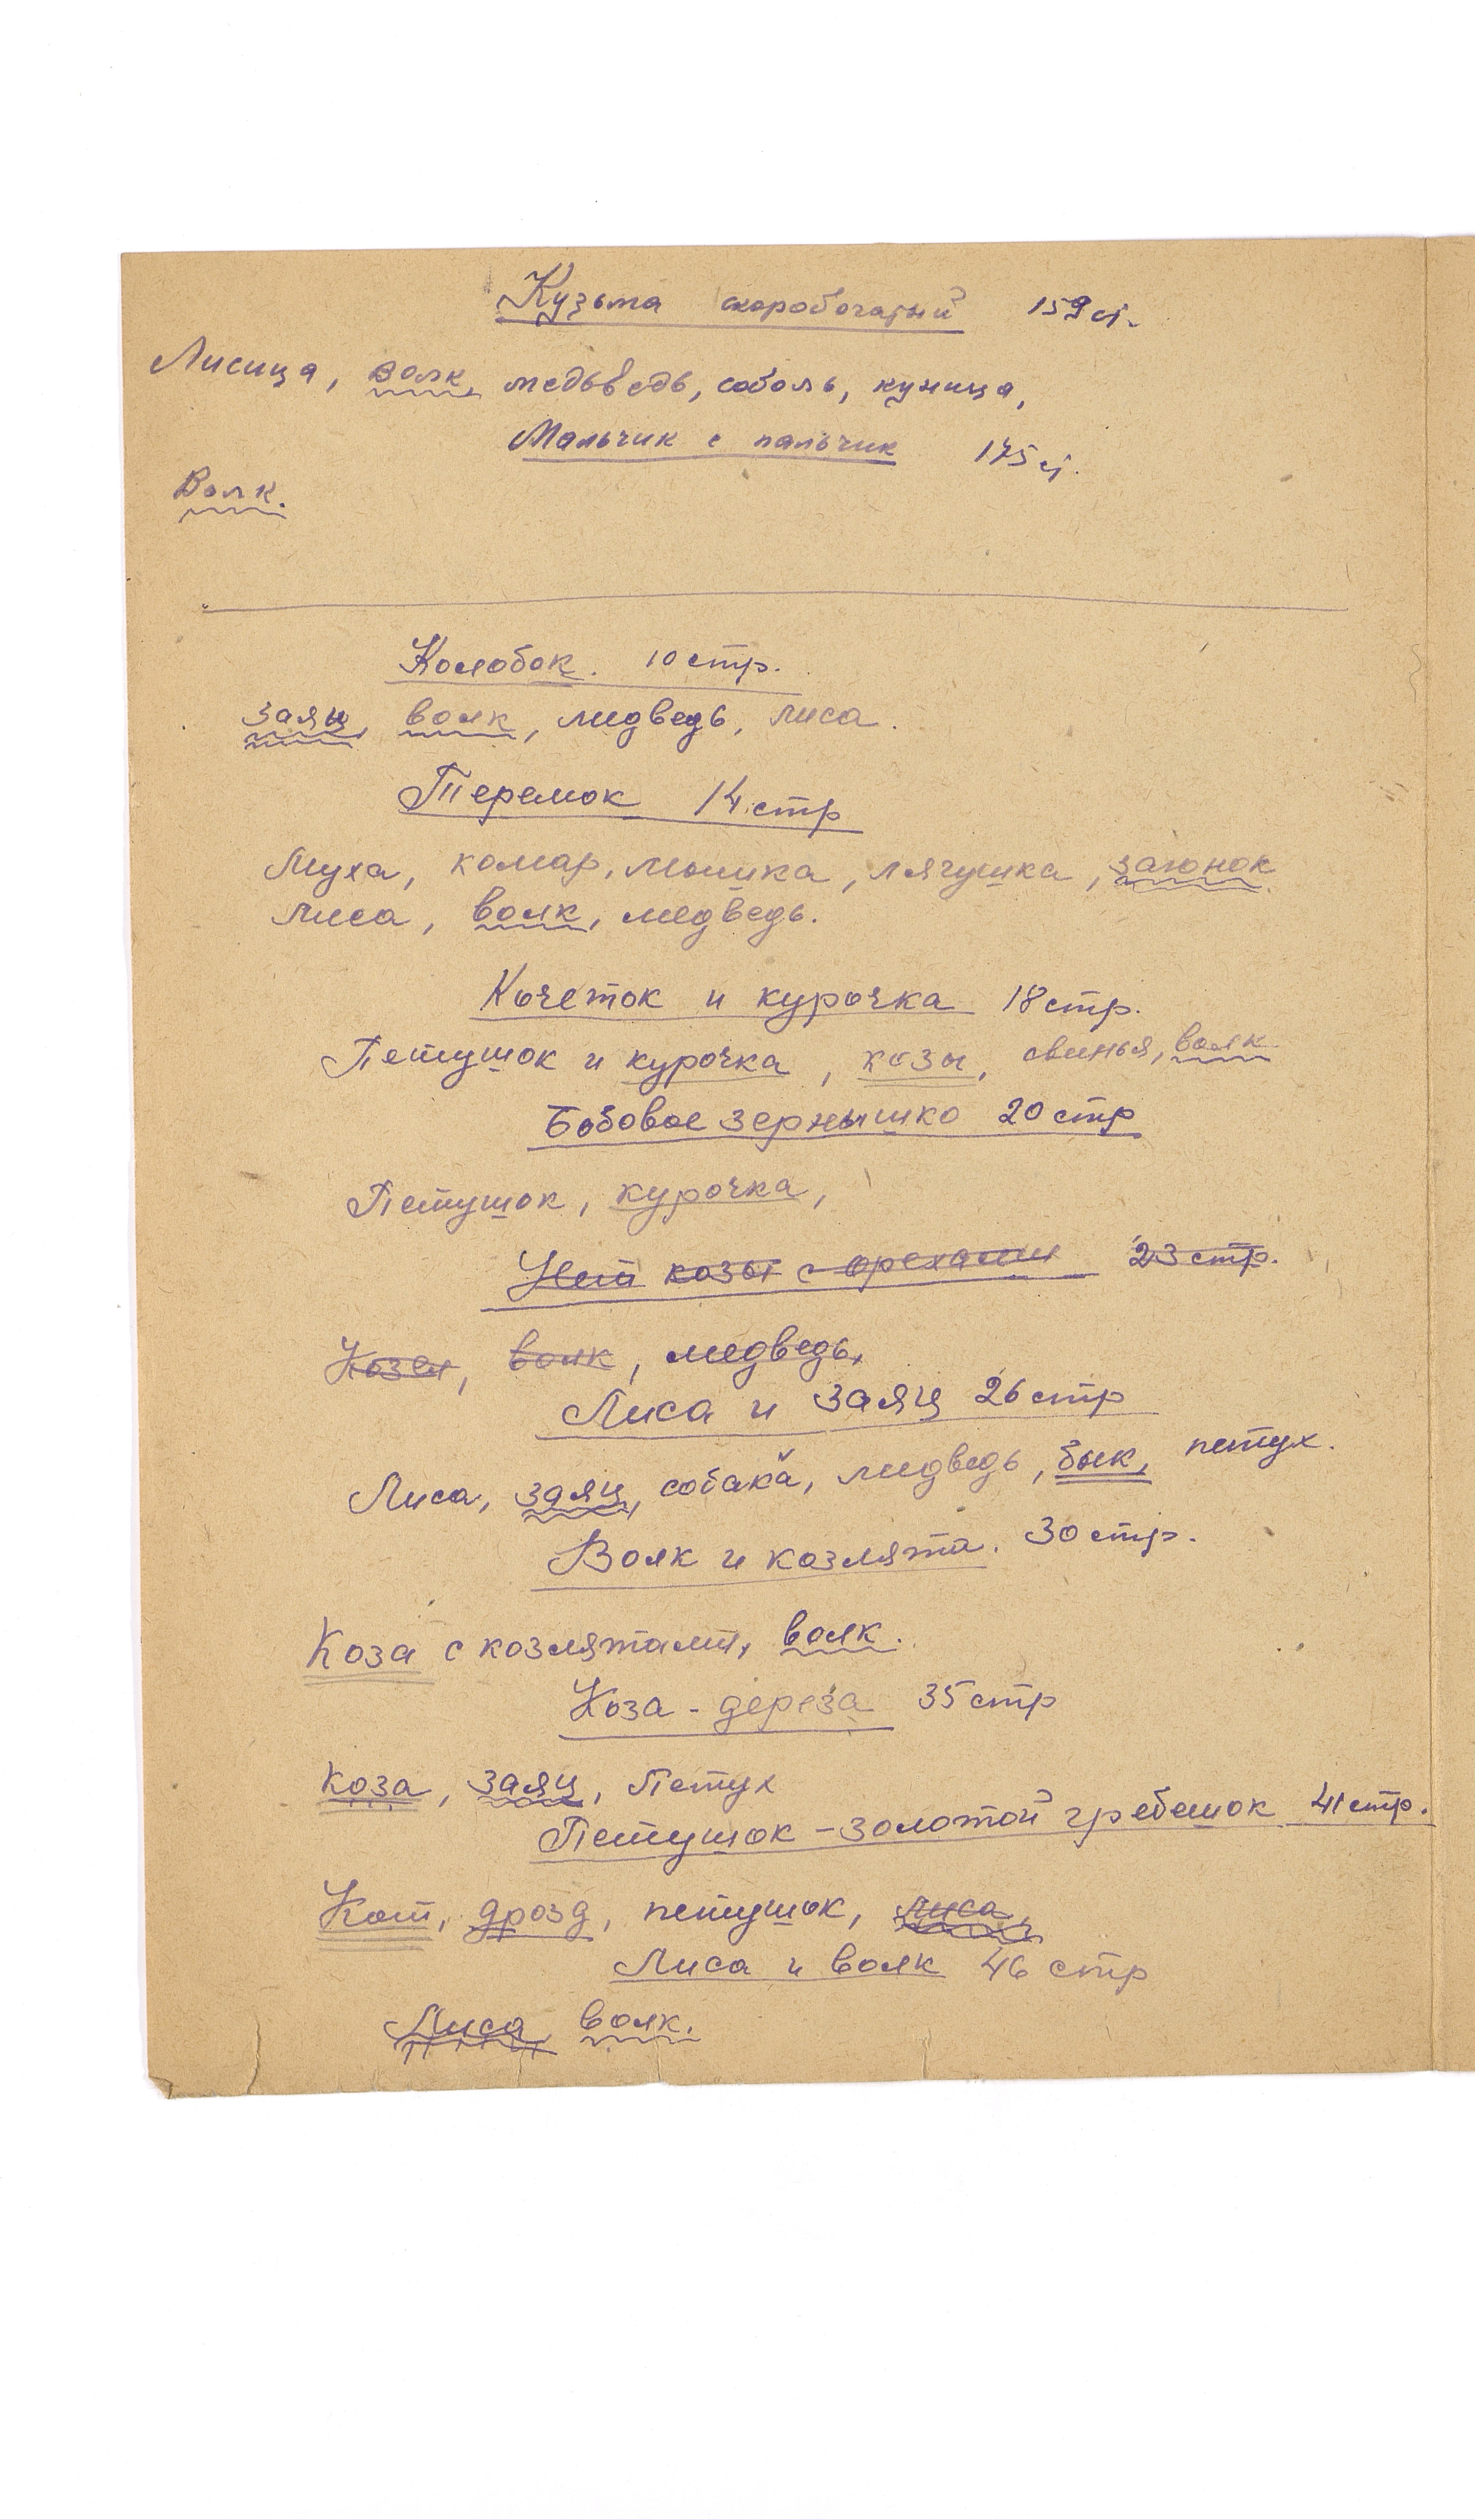 Кузьма скоробогатый 159 ст.
Лисица, волк, медьведь, соболь, куница,
Мальчик с пальчик 175 ст.
Волк.
Колобок. 10 стр.
заяц, волк, медведь, лиса.
Теремок 14 стр
Муха, комар, мышка, лягушка, заюнок
лиса, волк, медведь.
Кочеток и курочка 18 стр.
Петушок и курочка, козы, свинья, волк
Бобовое зернышко 20 стр
Петушок, курочка,
Нет козы с орехами 23 стр.
Козел, волк, медведь,
Лиса и заяц 26 стр
Лиса, заяц, собака, медведь, бык, петух.
Волк и козлята. 30 стр.
Коза с козлятами, волк.
Коза - дереза 35 стр
Коза, заяц, Петух
Петушок - золотой гребешок 41 стр.
Кот, дрозд, петушок, лиса,
Лиса и волк 46 стр
Лиса, волк.